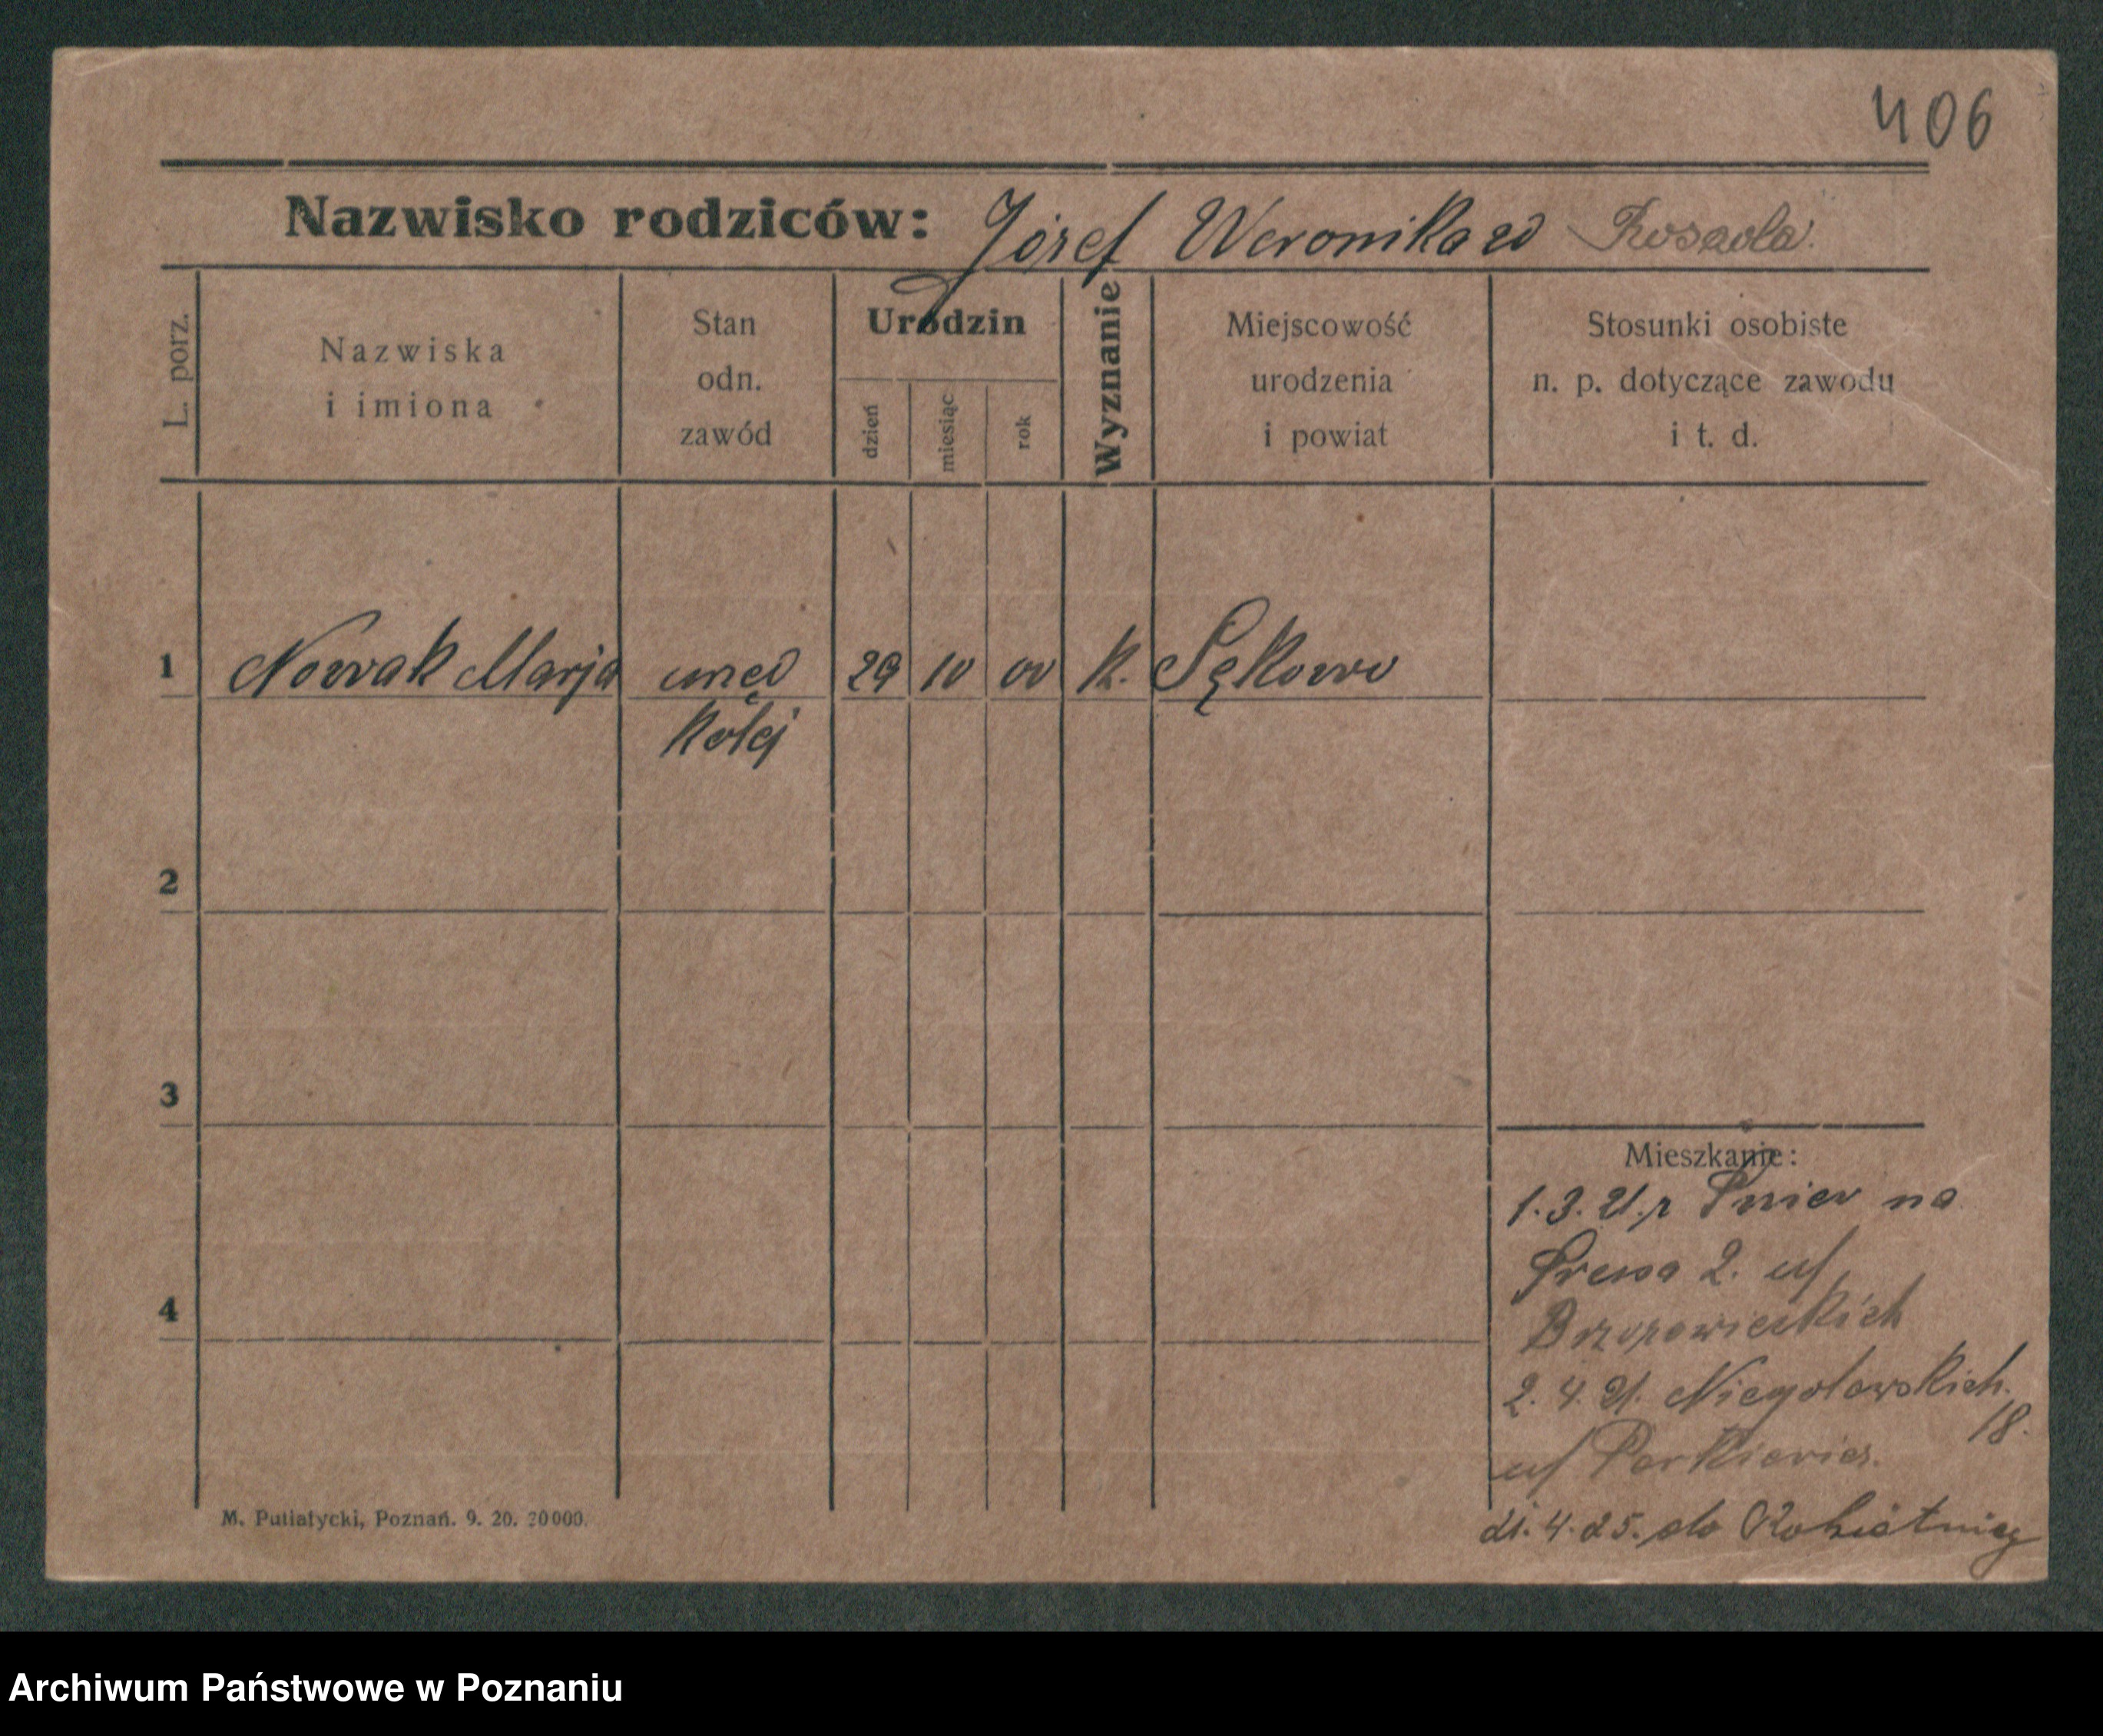 406
Nazwisko rodziców: Józef Weronika zd
L. porz.
Nazwiska i imiona
Stan odn. zawód
Urodzin
dzień
miesiąc
rok
Wyznanie
Miejscowość urodzenia i powiat
Stosunki osobiste n. p. dotyczące zawodu i t. d.
1 Nowak Marja 29 10 00 k. Sękowo
kolej
2
3
Mieszkanie:
1. 3. 21. r na
2. u/
4
2. 4. 21. Niegolewskich.
18.
u/
21. 4. 25. do Rokietnicy
M. Putiatycki, Poznań. 9. 20. 20000.
Archiwum Państwowe w Poznaniu